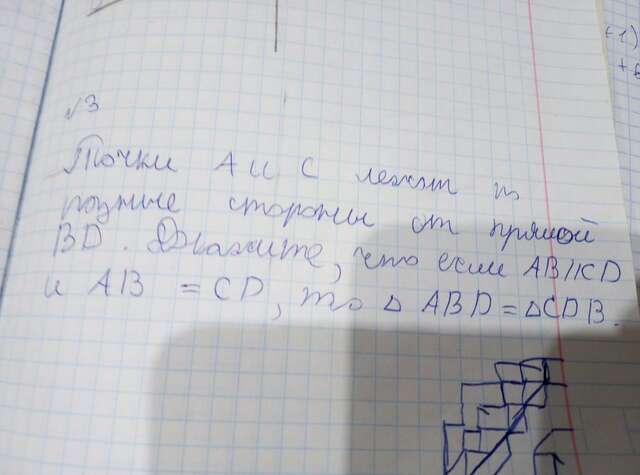 №3
Точки А и С лежат по
разные стороны от прямой
BD. Докажите, что если AB||CD
и AB = CD, то △ ABD = △CDB.
-1)